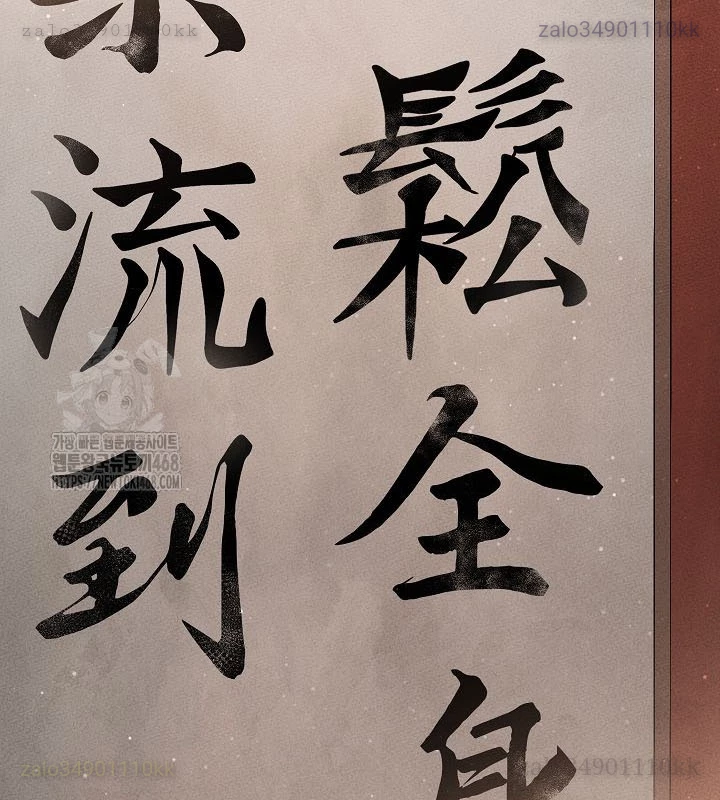 zalo34901110kk
zalo34901110kk
鬆全
流到
가장 빠른 웹툰제공사이트
웹툰왕국뉴토끼468
HTTPS://NEWTOKI468.COM
zalo34901110kk
34901110kk